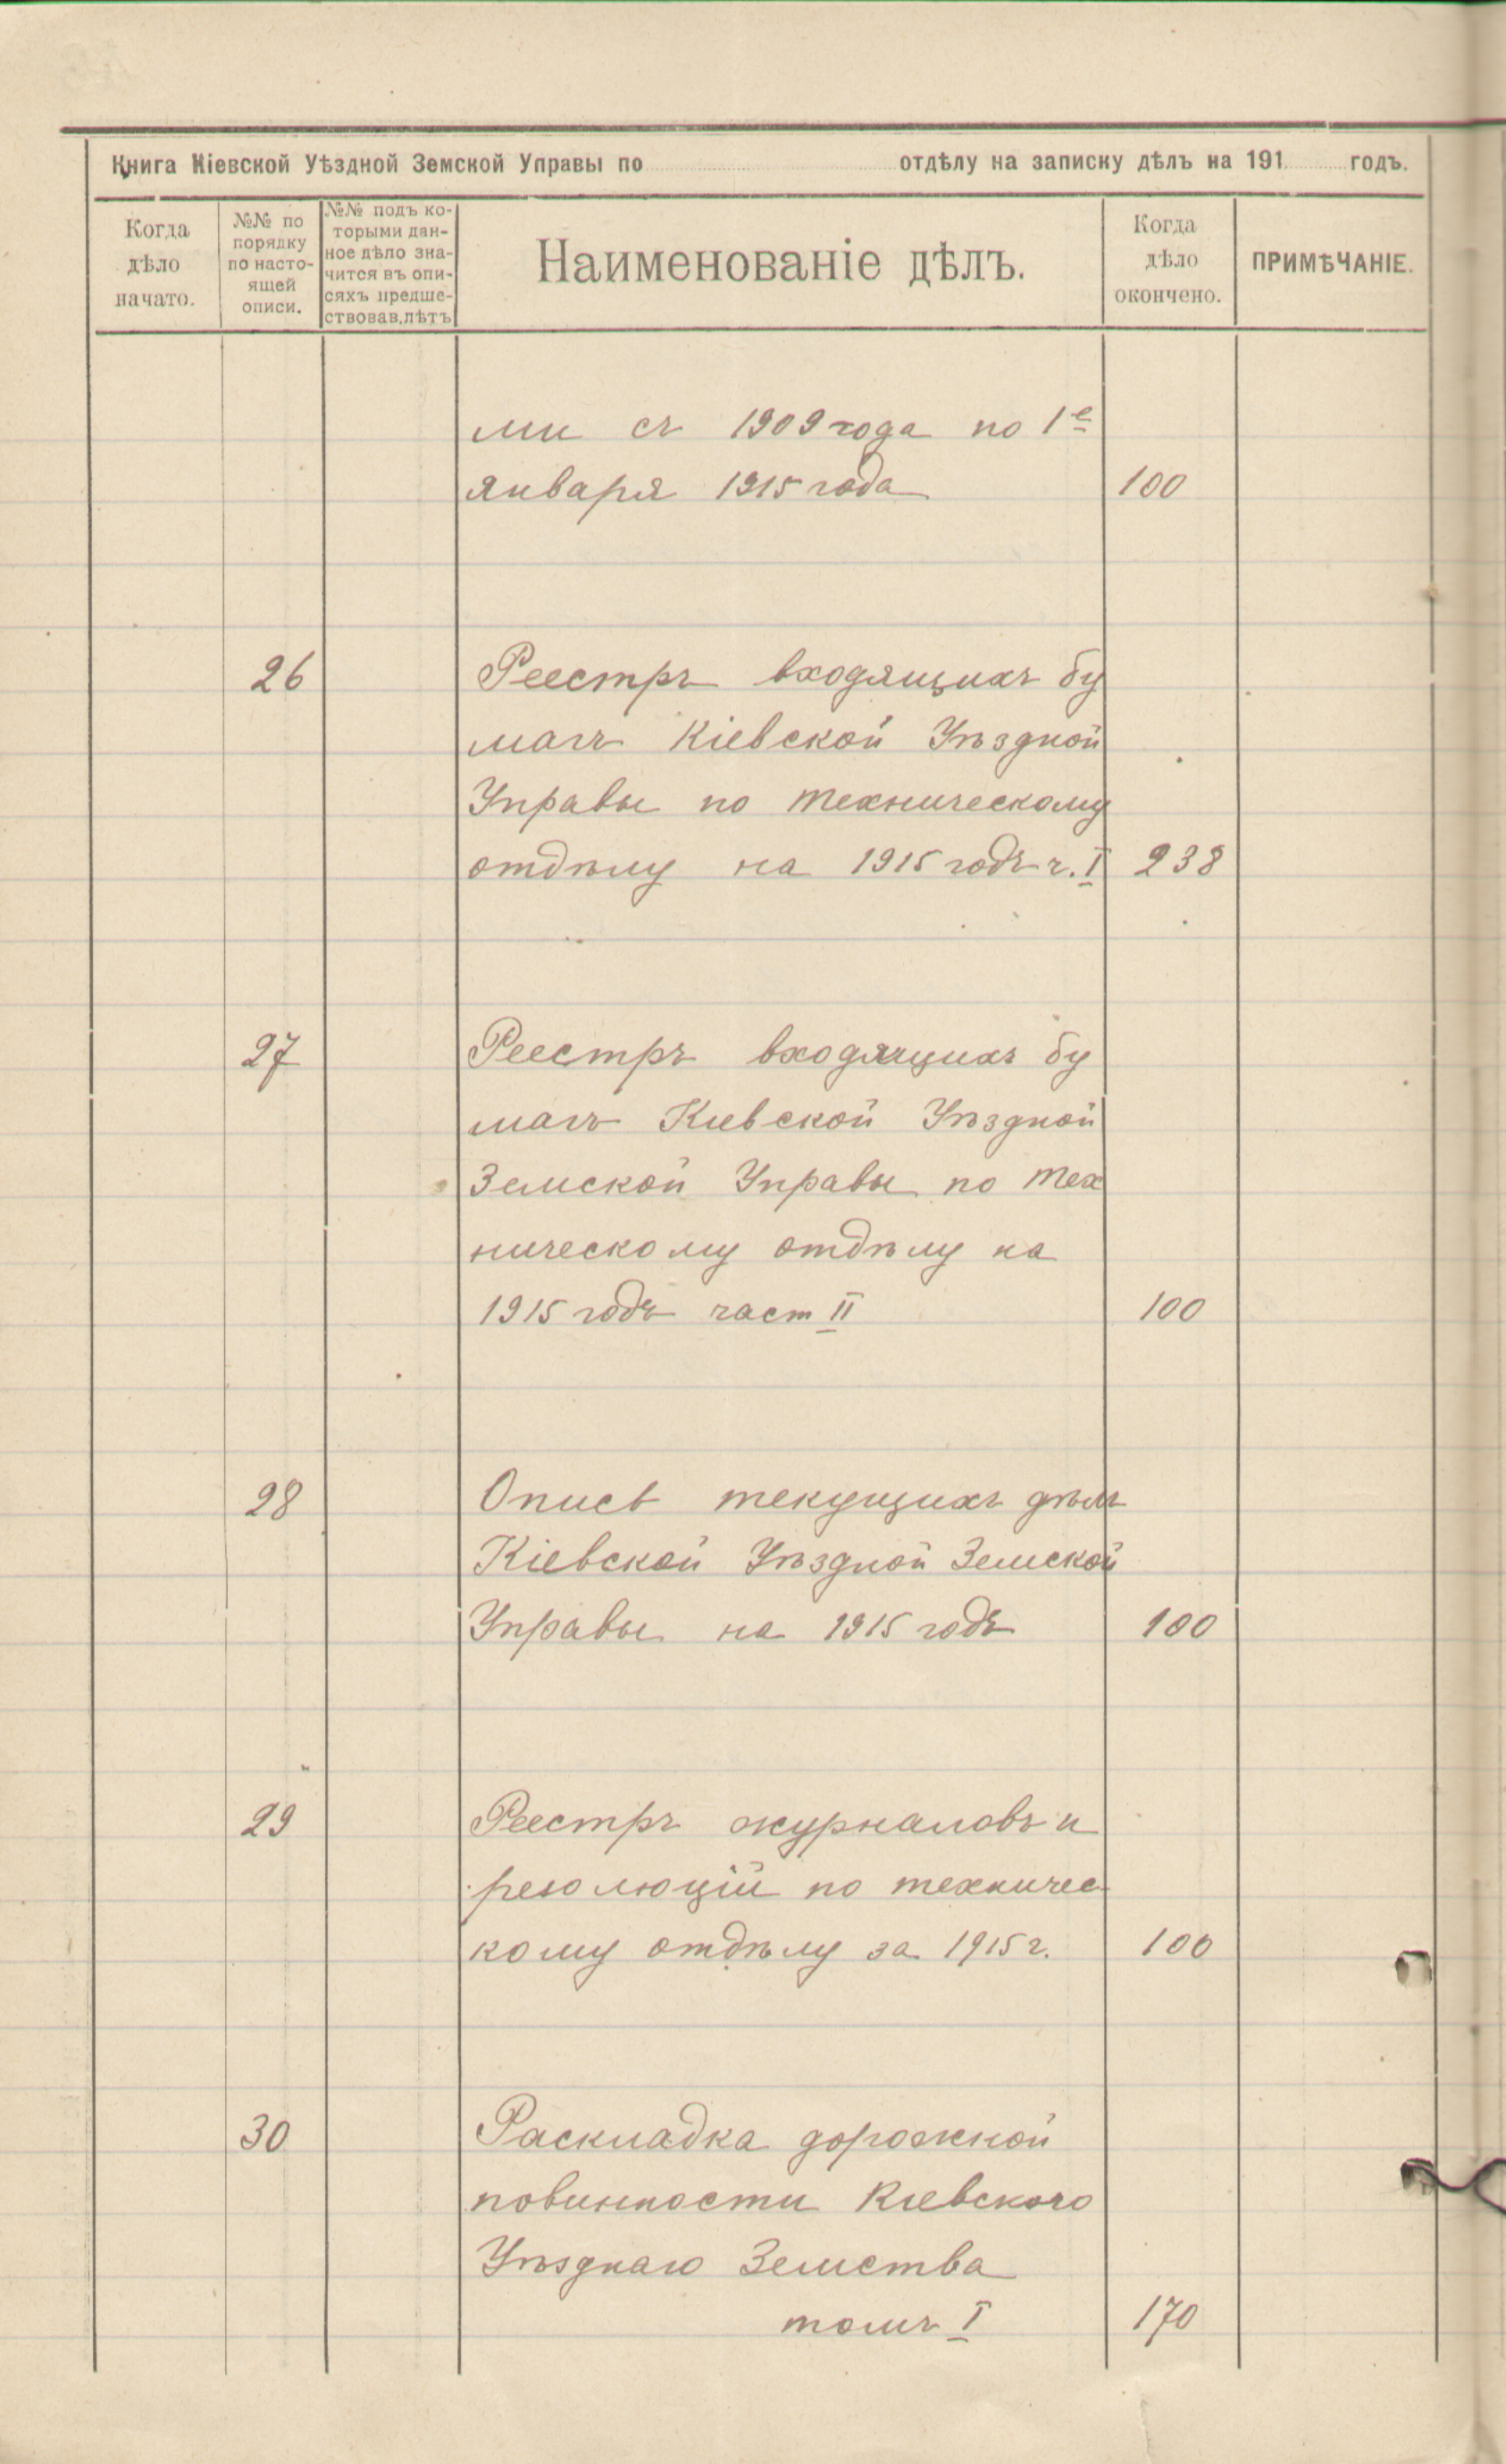 Книга Кіевской Уѣздной Земской Управы по отдѣлу на записку дѣлъ на 191 годъ.
Когда
дѣло
начато.
№№ по
порядку
по насто-
ящей
описи.
№№ подъ ко-
торыми дан-
ное дѣло зна-
чится въ опи-
сяхъ предше-
ствовав.лѣтъ
Наименованіе дѣлъ.
Когда
дѣло
окончено.
ПРИМѢЧАНІЕ.
ми съ 1909 года по 1е
января 1915 года 100
26 Реестръ входящихъ бу
магъ Кіевской Уѣздной
Управы по техническому
отдѣлу на 1915 годъ ч. I 238
27 Реестръ входящихъ бу
магъ Киевской Уѣздной
Земской Управы по тех
ническому отдѣлу на
1915 годъ част II 100
28 Опись текущихъ дѣлъ
Кіевской Уѣздной Земской
Управы на 1915 годъ 100
29 Реестръ журналовъ и
резолюцій по техничес
кому отдѣлу за 1915 г. 100
30 Раскладка дорожной
повинности Киевского
Уѣзднаго Земства
томъ I 170